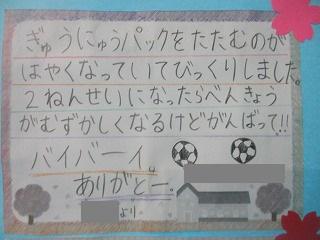 ぎゅうにゅうパックをたたむのが
はやくなっていてびっくりしました。
2ねんせいになったらべんきょう
がむずかしくなるけどがんばって!!
バイバーイ。
ありがとー。
より